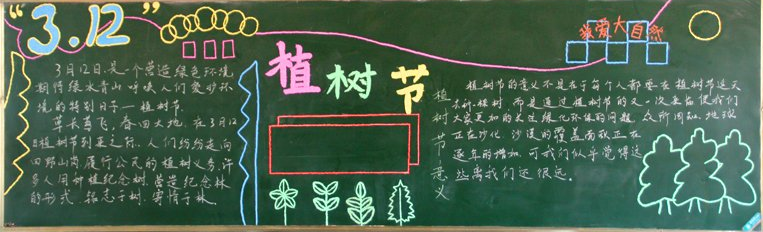 "3.12"
3月12日.是一个营造绿色环境
期待绿水青山呼唤人们爱护环
境的特别日子—植树节.
草长莺飞,春回大地,在3月12
日植树节到来之际,人们纷纷走向
田野山岗履行公民的植树义务,许
多人用种植纪念树,营造纪念林
的形式,铭志于树,寄情于林.
植树节
我爱大自然
植树节意义
植树节的意义不是在于每个人都要在植树节这天
去种一棵树.而是通过植树节的又一次来临使我们
大家更加的去注
的问题.众所周知,地球
正在沙化,沙漠的覆盖面积正在
逐年的增加,可我们似乎觉得这
些离我们还很远。